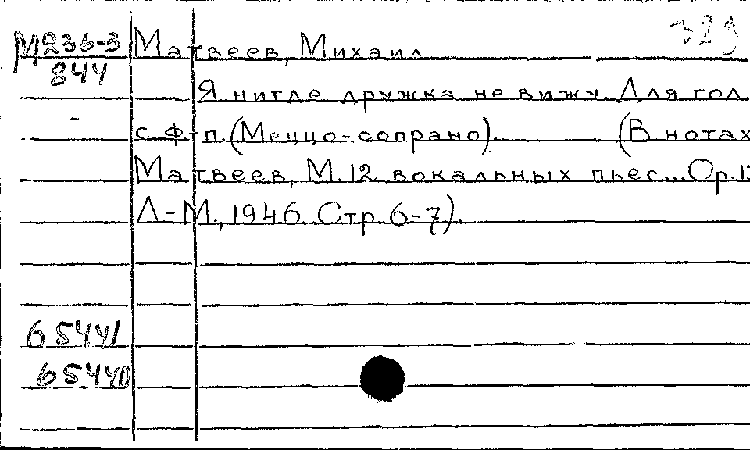 329
М236-3 Матвеев, Михаил
844
Я нигде дружка не вижу. Для гол.
с ф-п. (Меццо-сопрано). (В нотах
Матвеев, М. 12 вокальных пьес... Ор. 12
Л-М., 1946. Стр. 6-7).
6544І
6544О